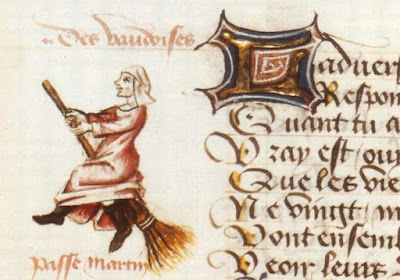 Des vaudoises
Ladvers
Respon
Quant tu a
Vray est ouy
Que les vie
Ne vingt m
Vont ensem
Veoir leurs
passe martin